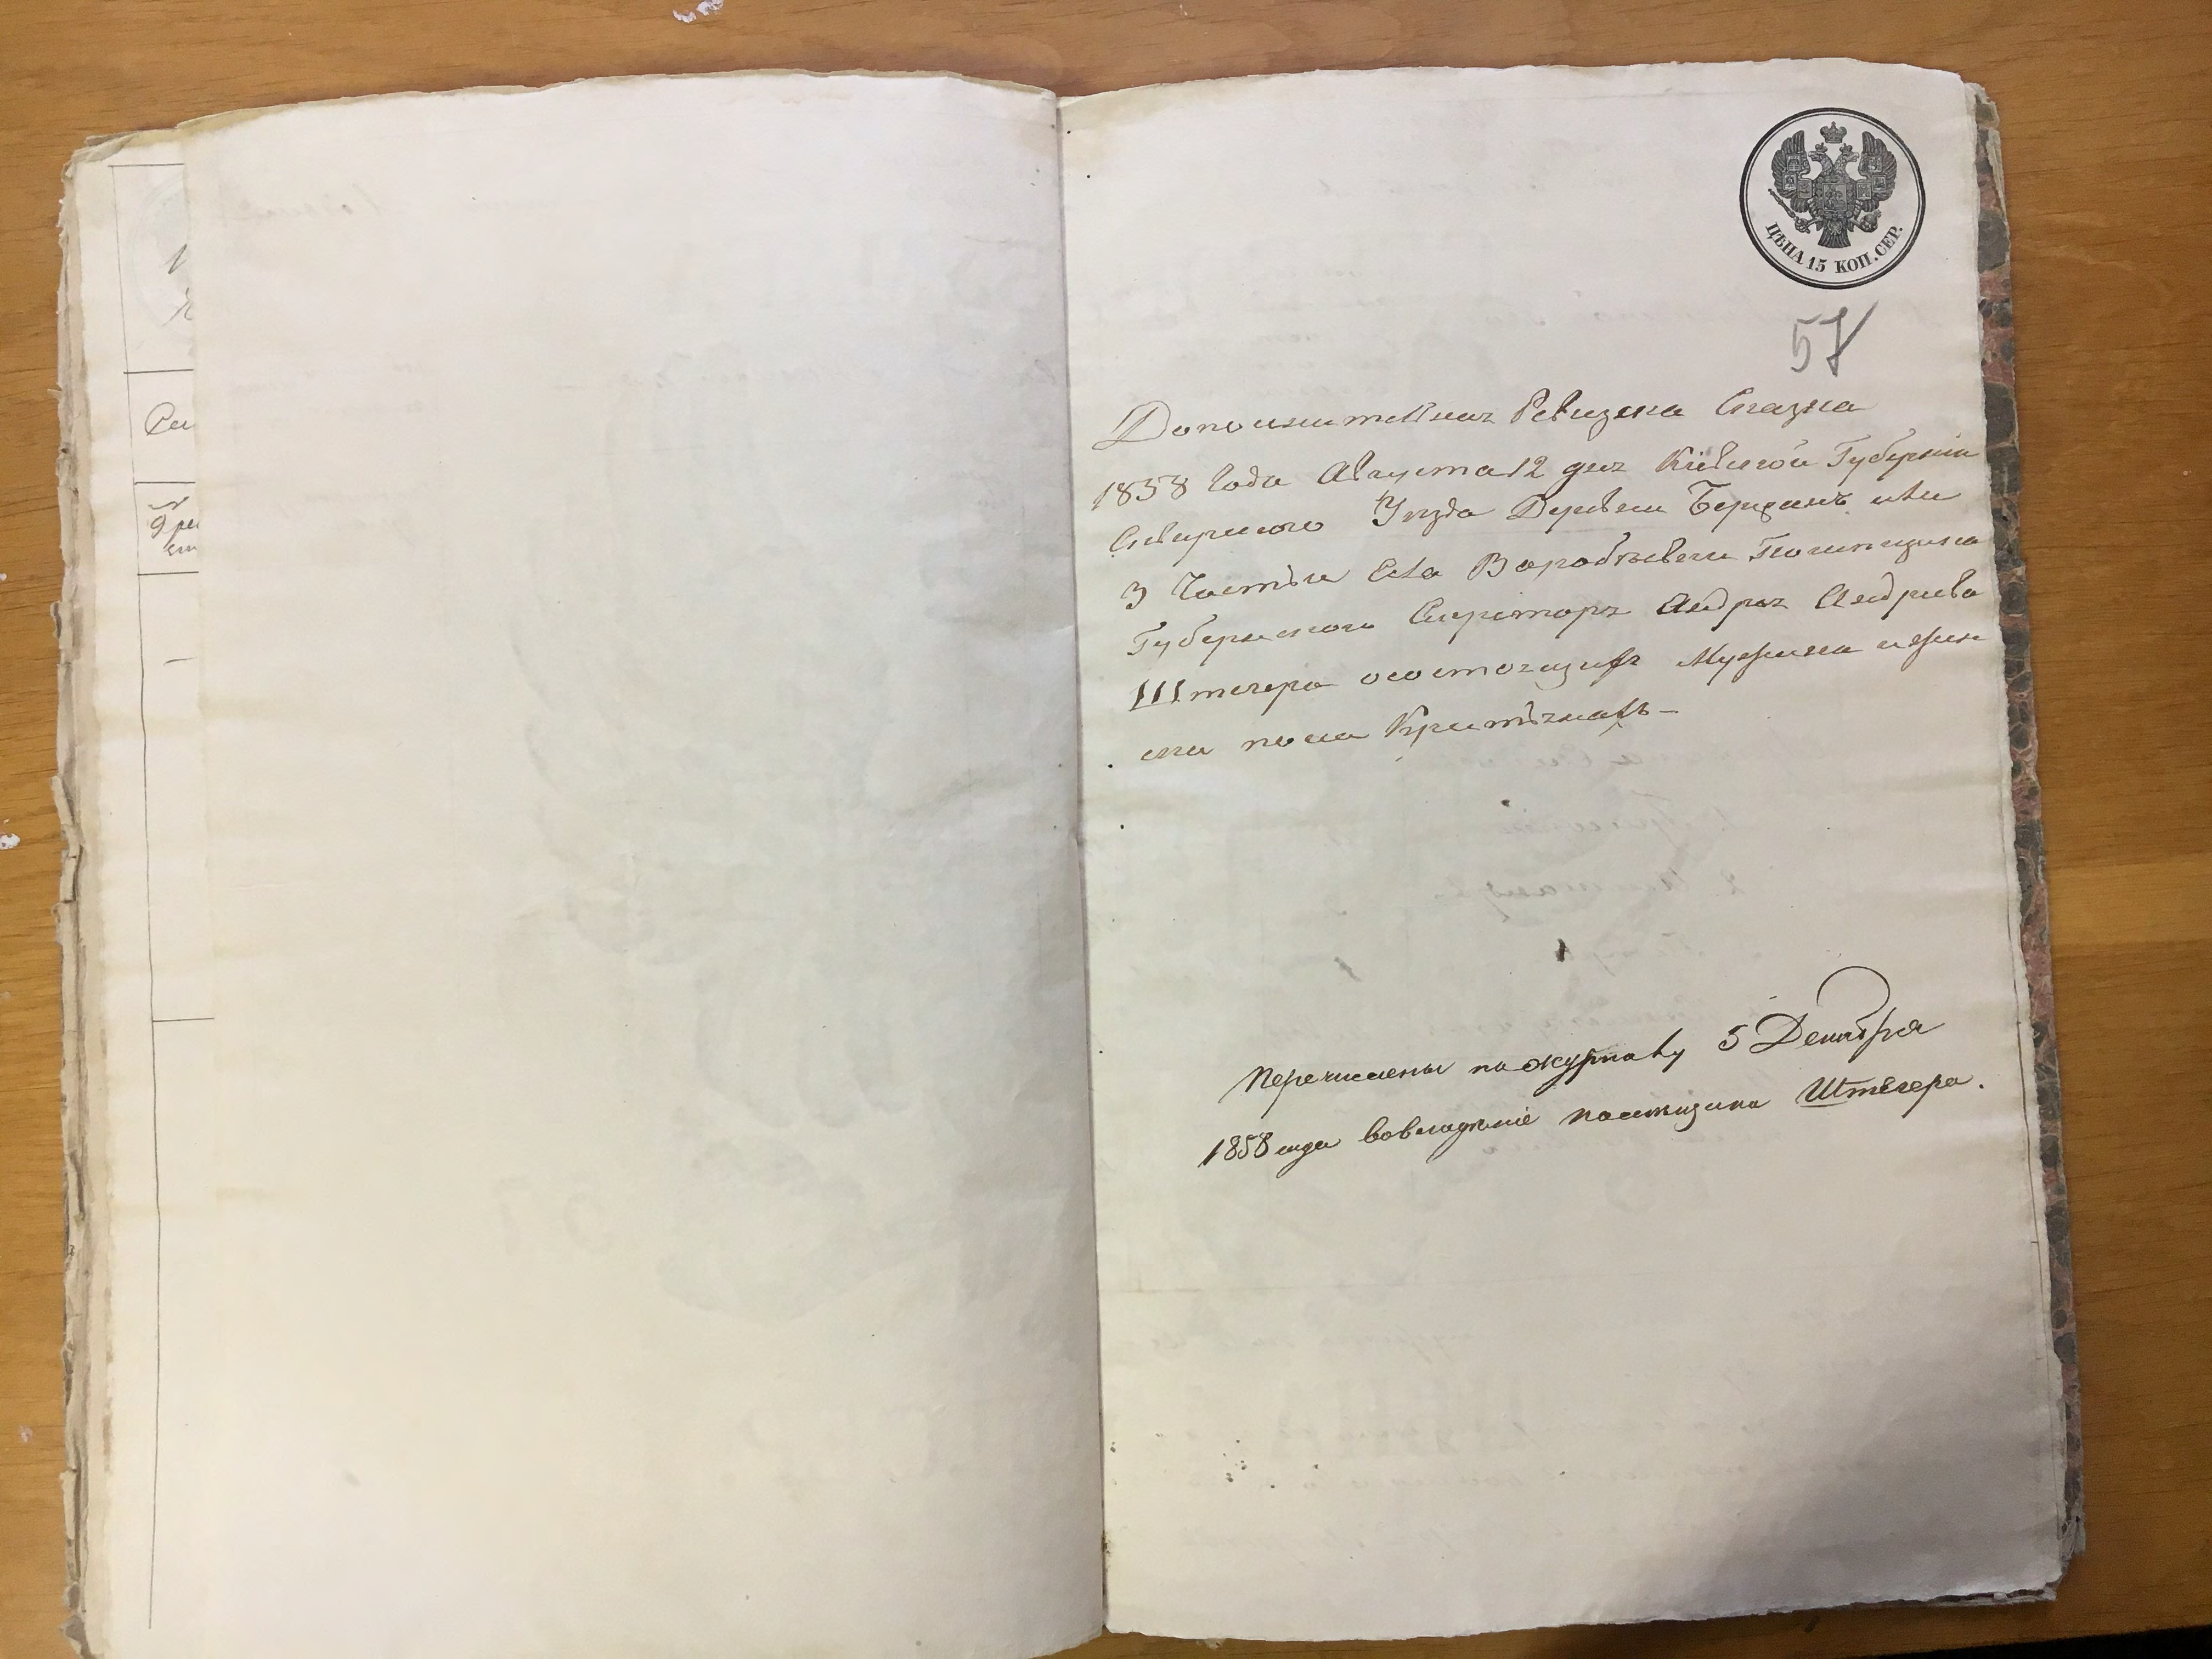 ЦѢНА 15 КОП. СЕР.
57
Дополнителная Ревизска Сказка
1858 Года Августа 12 дня Кіевской Губерніи
Сквирского Уезда Деревни Бердянъ или
3 Частѣи Села Воробѣевки Помещика
Губернского Секретаря Андрея Андреева
Штегера осостоящихъ Мужеска ижен
ска пола Крестѣянахъ —
Перечислены по журналу 5 Декабря
1858 года вовладѣніе помещика Штегера.